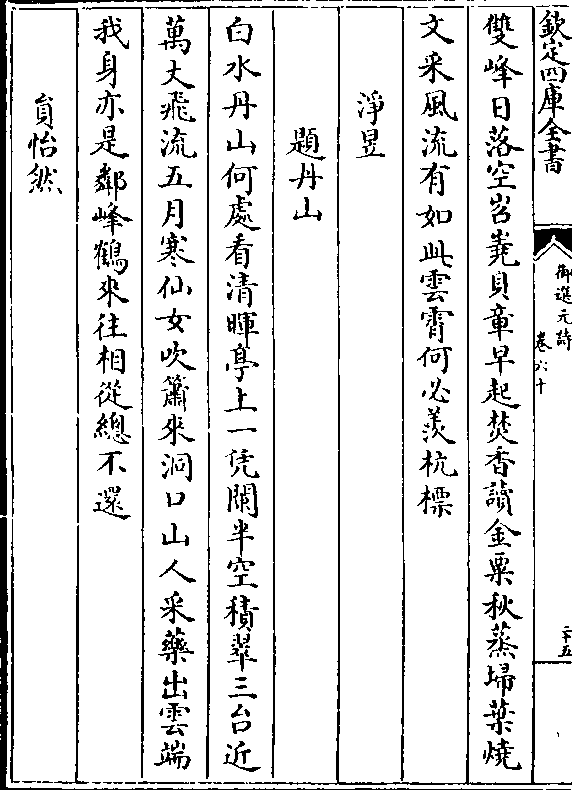 欽定四庫全書
御選元詩
卷六十
二十五
雙峰日落空岧嶤貝章早起焚香讀金粟秋蒸埽葉燒
文采風流有如此雲霄何必羨杭標
淨昱
題丹山
白水丹山何處看清暉亭上一凭闌半空積翠三台近
萬丈飛流五月寒仙女吹簫來洞口山人采藥出雲端
我身亦是鄰峰鶴來往相從總不還
貟怡然